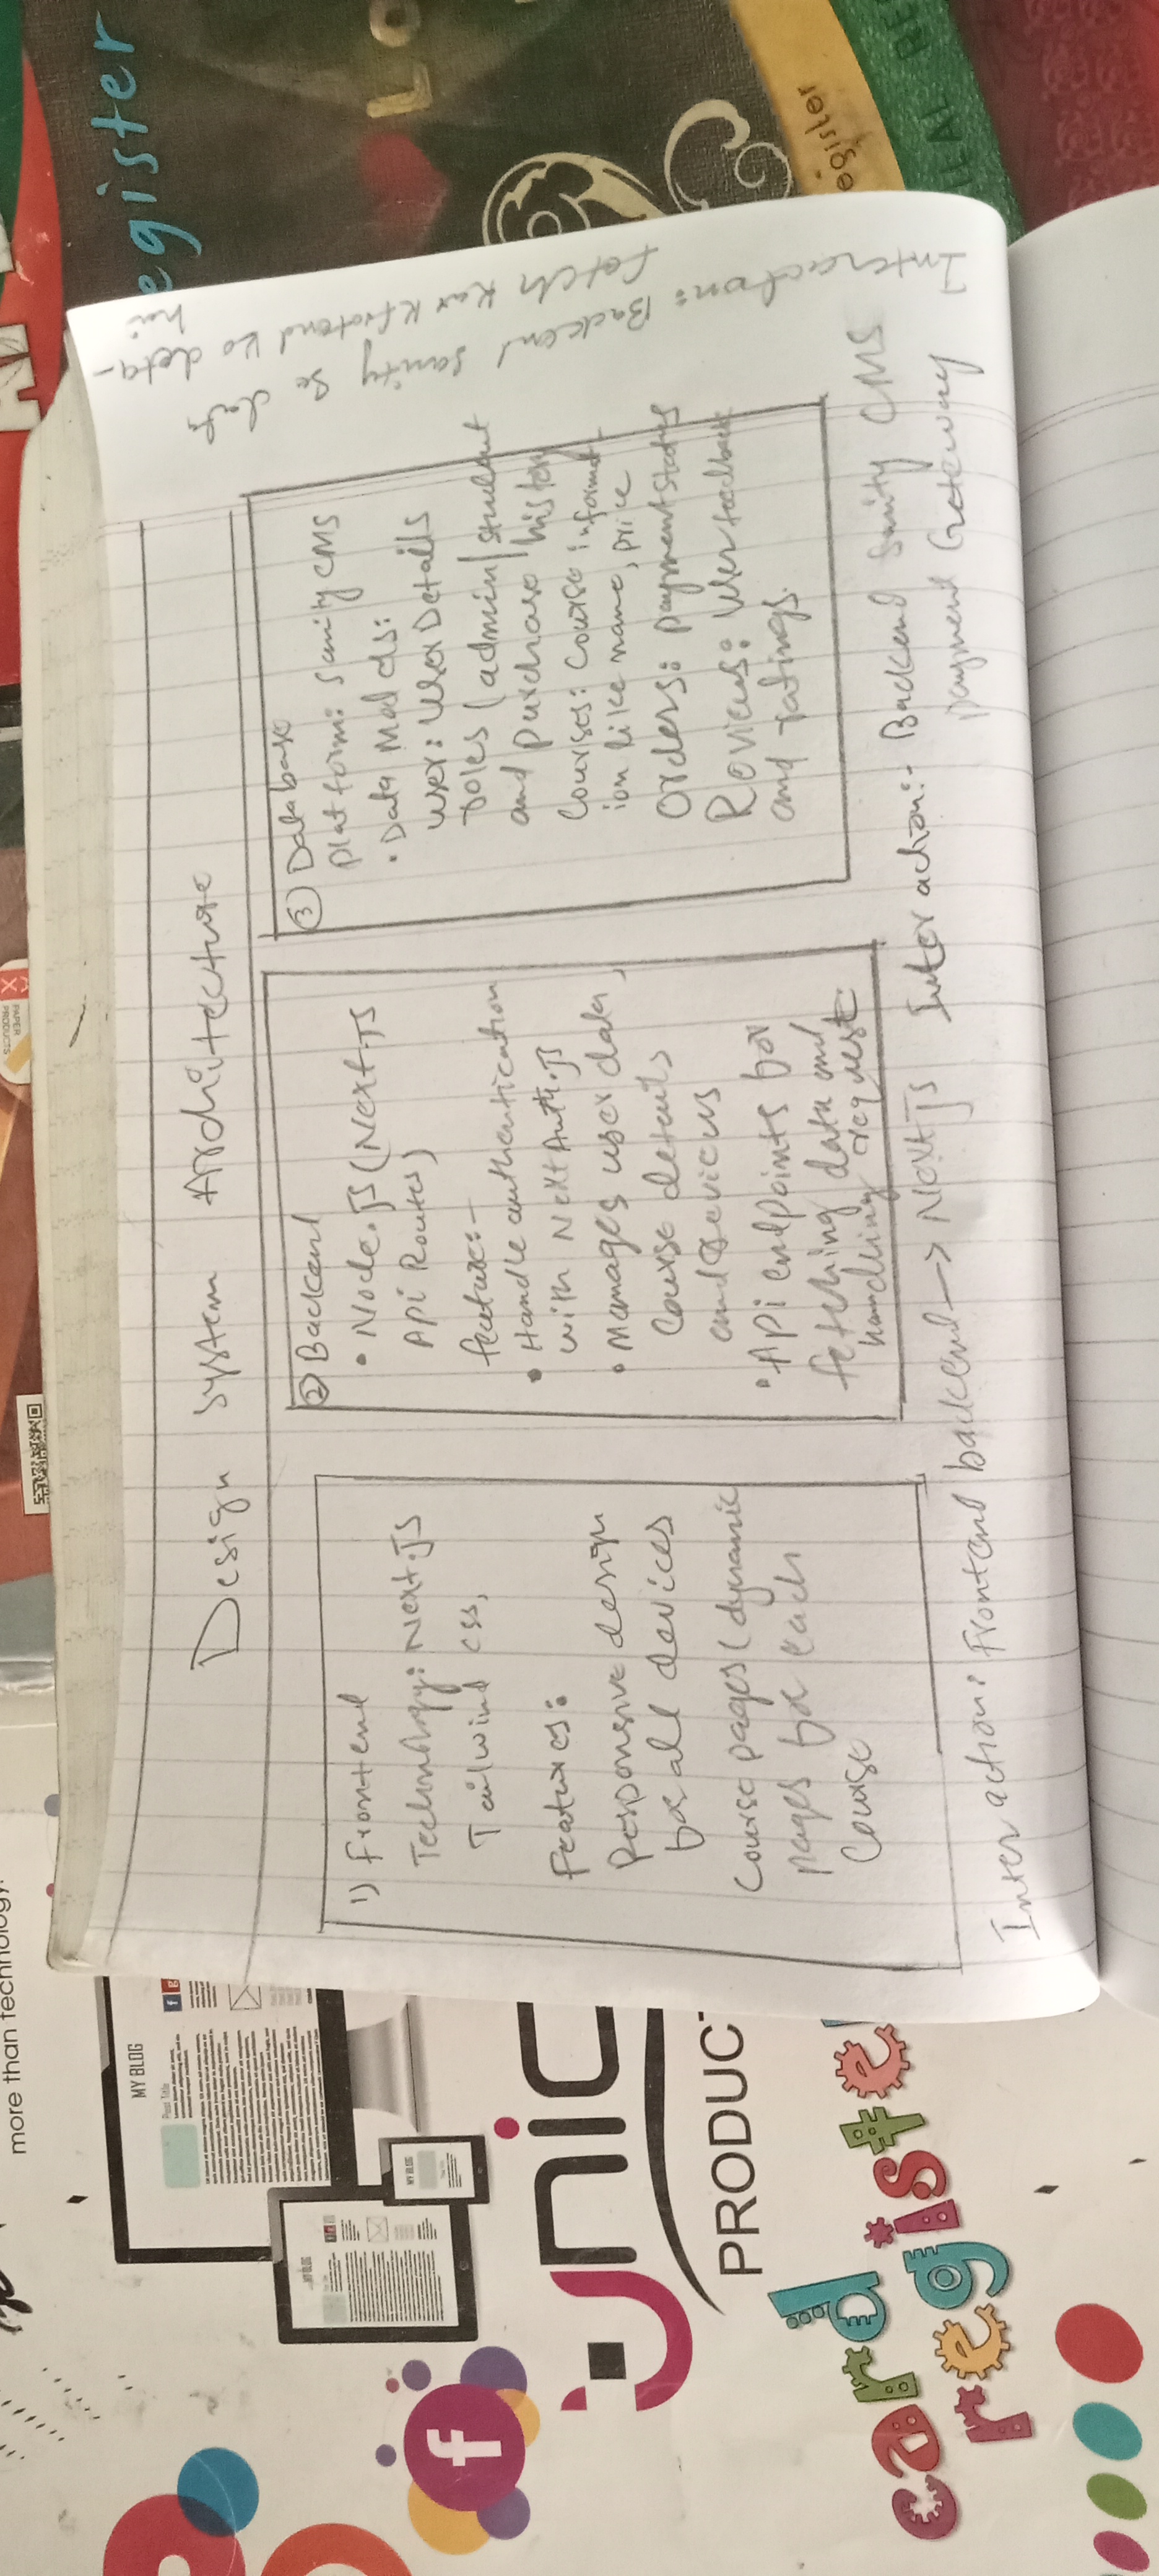 Design system Architecture
1) frontend
Technology: Next.JS
Tailwind css,
Features:
Responsive design
for all devices
course pages (dynamic
pages for each
course
Inter action: Frontend backend --> Next JS
② Backend
• Node.JS (Next.JS
API Routes)
feature:-
• Handle authentication
with Next Auth.JS
• manages user data,
course details
and reviews
• API endpoints for
fetching data and
handling request.
③ Database
platform: sanity CMS
• Data Models:
user: User Details
roles (admin/student
and purchase history
Courses: Course informat
ion like name, price
Orders: payment status
Reviews: User feedback
and ratings.
Inter action:- Backend Sanity CMS
payment Gateway
Interaction: Backend sanity se
fatch kar k frotend ko deta
hai
egister
LO
egister
more than technology.
MY BLOG
Post Title
MY BLOG
f
unic
PRODUCT
card
register
PAPER
PRODUCTS
X